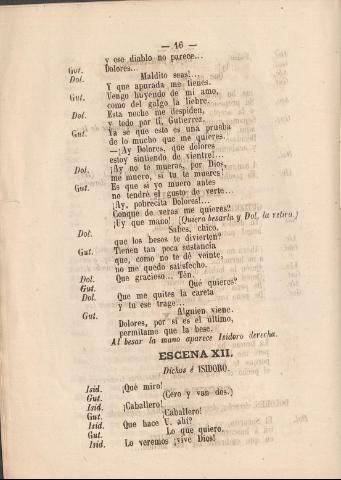 — 16 —
y ese diablo no parece...
Gut. Dolores...
Dol. Maldito seas!...
Y que apurada me tienes.
Gut. Vengo huyendo de mi amo,
como del galgo la liebre.
Dol. Esta noche me despiden,
y todo por tí, Gutierrez.
Gut. Ya sé que esto es una prueba
de lo mucho que me quieres.
—¡Ay Dolores, que dolores
estoy sintiendo de vientre!...
Dol. ¡Ay no te mueras, por Dios,
me muero, si tu te mueres!
Gut. Es que si yo muero antes
no tendré el gusto de verte...
¡Ay, pobrecita Dolores!...
Conque de veras me quieres?
¡Uy que mano! (Quiera besarla y Dol. la retira.)
Dol. Sabes, chico,
que los besos te divierten?
Gut. Tienen tan poca sustancia
que, como no te dé veinte,
no me quedo satisfecho.
Dol. Que gracioso... Ten.
Gut. Qué quieres?
Dol. Que me quites la careta
y tu ese trage...
Gut. Alguien viene.
Dolores, por si es el último,
permitame que la bese.
Al besar la mano aparece Isidoro derecha.
ESCENA XII.
Dichos é ISIDORO.
Isid. ¡Qué miro!
Gut. (Cero y van dés.)
Isid. ¡Caballero!
Gut. ¡Caballero!
Isid. Que hace V. ahi?
Gut. Lo que quiero.
Isid. Lo veremos ¡vive Dios!